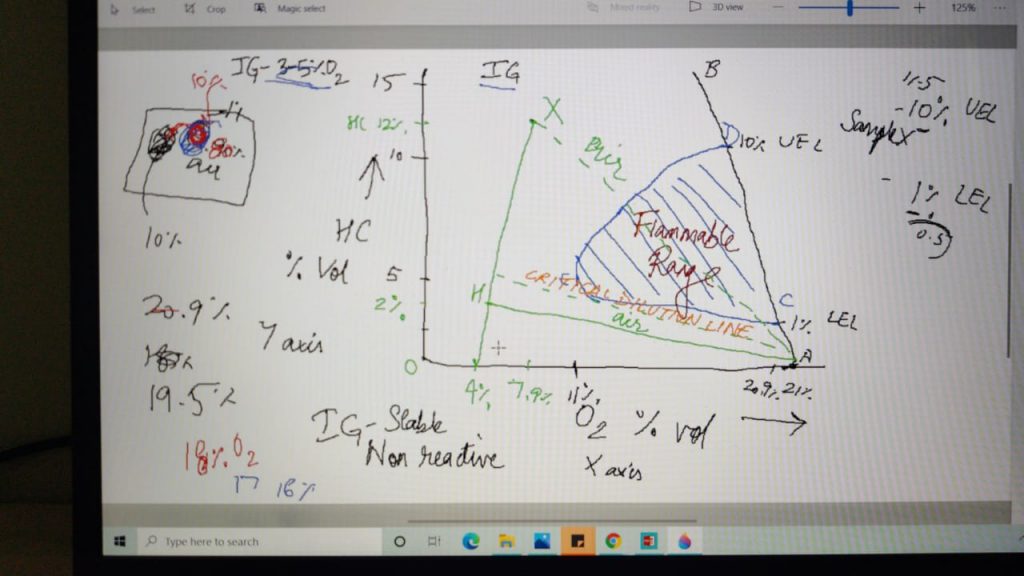 Select
Crop
Magic select
Mixed reality
3D view
125%
IG- 3-5% O2
IG
10%
air
10%
20.9%
19.5%
18% O2
17 16%
15
HC 12%
10
HC
% Vol
5
2%
Y axis
0
X
air
H
B
D 10% UEL
Flammable
Range
CRITICAL DILUTION LINE
air
C
1% LEL
A
4%
7.9%
11%
20.9%
21%
O2 % vol
X axis
IG- Stable
Non reactive
11.5
-10% UEL
Sample X
- 1% LEL
0.5
Type here to search